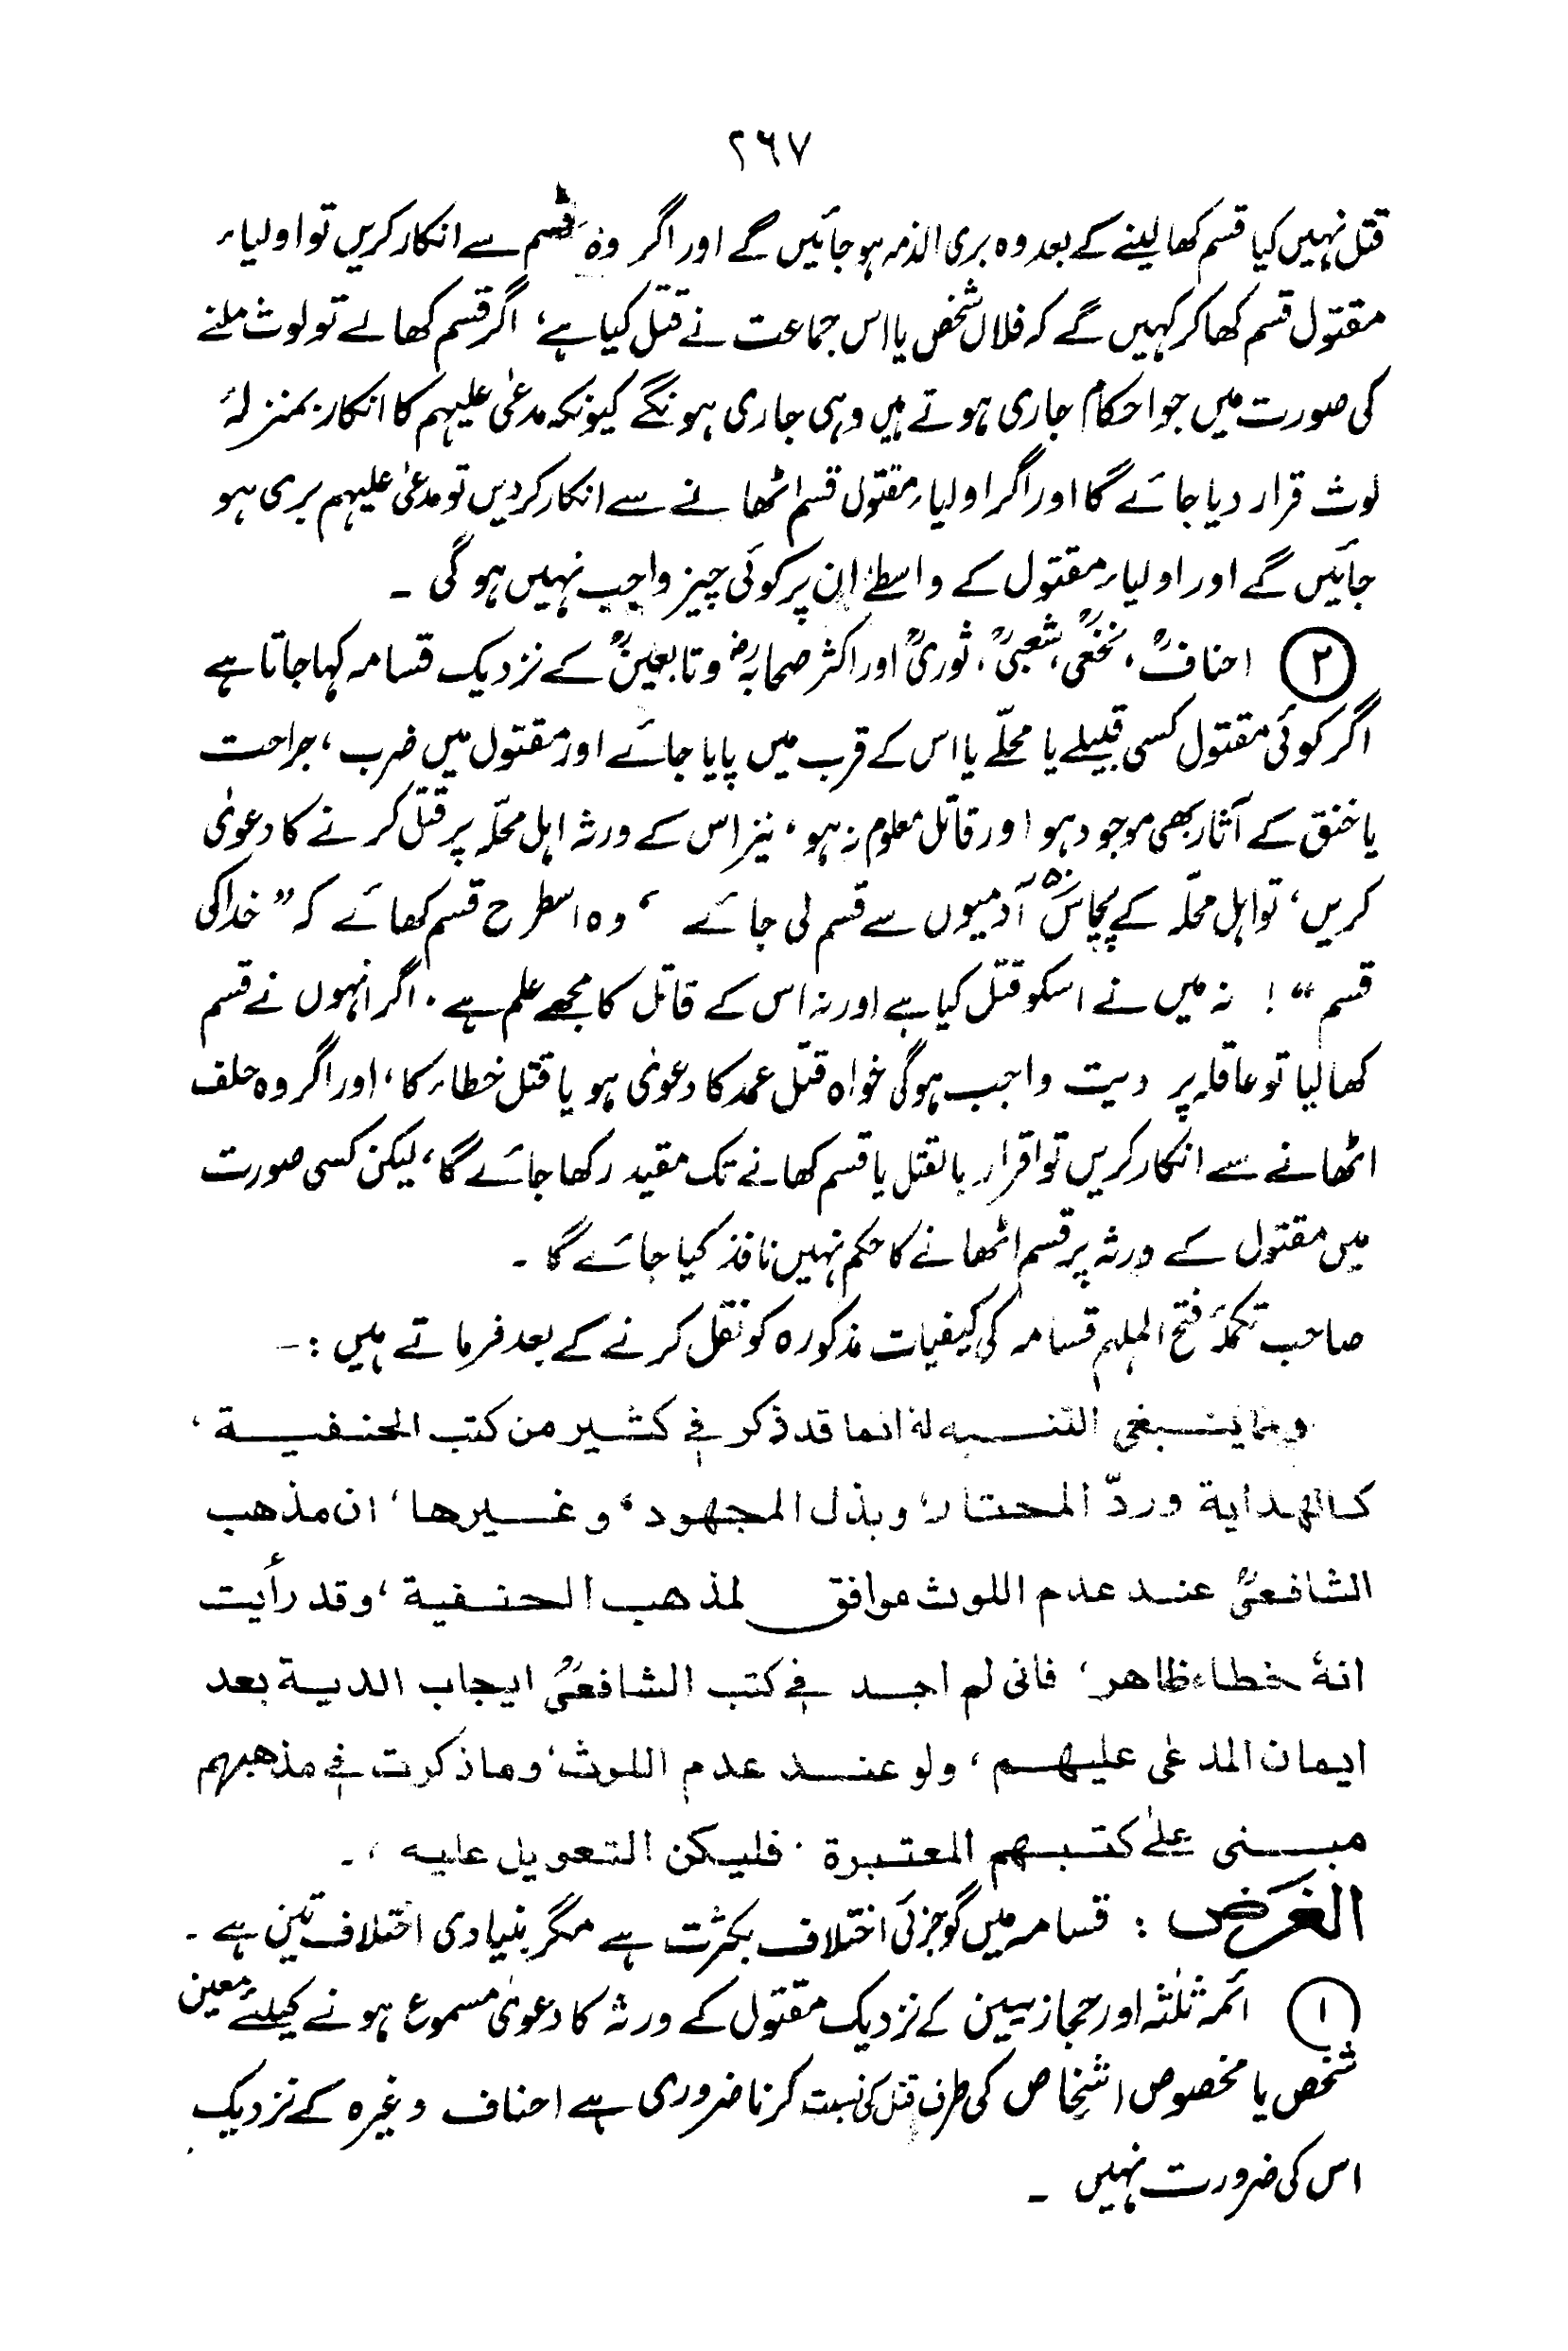 ۲۶۷
قتل نہیں کیا قسم کھا لینے کے بعد وہ بری الذمہ ہو جائیں گے اور اگر وہ قسم سے انکار کریں تو اولیاء
مقتول قسم کھا کر کہیں گے کہ فلاں شخص یا اس جماعت نے قتل کیا ہے، اگر قسم کھا لے تو لوث ملنے
کی صورت میں جو احکام جاری ہوتے ہیں وہی جاری ہونگے کیونکہ مدعیٰ علیہم کا انکار بمنزلۂ
لوث قرار دیا جائے گا اور اگر اولیاء مقتول قسم اٹھانے سے انکار کر دیں تو مدعیٰ علیہم بری ہو
جائیں گے اور اولیاء مقتول کے واسطے ان پر کوئی چیز واجب نہیں ہو گی ۔
۲ احنافؒ، نخعیؒ، شعبیؒ، ثوریؒ اور اکثر صحابہؓ و تابعینؒ کے نزدیک قسامہ کہا جاتا ہے
اگر کوئی مقتول کسی قبیلے یا محلّے یا اس کے قرب میں پایا جائے اور مقتول میں ضرب، جراحت
یا خنق کے آثار بھی موجود ہو اور قاتل معلوم نہ ہو، نیز اس کے ورثہ اہل محلّہ پر قتل کرنے کا دعویٰ
کریں، تو اہل محلّہ کے پچاس ۵۰ آدمیوں سے قسم لی جائے، وہ اسطرح قسم کھائے کہ ”خدا کی
قسم“! نہ میں نے اسکو قتل کیا ہے اور نہ اس کے قاتل کا مجھے علم ہے ۔ اگر انہوں نے قسم
کھا لیا تو عاقلہ پر دیت واجب ہوگی خواہ قتل عمد کا دعویٰ ہو یا قتل خطاء کا، اور اگر وہ حلف
اٹھانے سے انکار کریں تو اقرار بالقتل یا قسم کھانے تک مقید رکھا جائے گا، لیکن کسی صورت
میں مقتول کے ورثہ پر قسم اٹھانے کا حکم نہیں نافذ کیا جائے گا ۔
صاحب تکملۂ فتح الملہم قسامہ کی کیفیات مذکورہ کو نقل کرنے کے بعد فرماتے ہیں :-
ومما ینبغی التنبہ لہ انما قد ذکر فی کثیر من کتب الحنفیة،
کالہدایة وردّ المحتار، وبذل المجہود، وغیرها، ان مذهب
الشافعیؒ عند عدم اللوث موافق لمذهب الحنفیة، وقد رأیت
انہٗ خطاء ظاهر، فانی لم اجد فی کتب الشافعیؒ ایجاب الدیة بعد
ایمان المدعٰی علیهم، ولو عند عدم اللوث، وما ذکرت فی مذهبهم
مبنی علٰی کتبهم المعتبرة . فلیکن التعویل علیه ،۔
الغرض : قسامہ میں گو جزئی اختلاف بکثرت ہے مگر بنیادی اختلاف تین ہے ۔
۱ ائمہ ثلٰثہ اور حجازیین کے نزدیک مقتول کے ورثہ کا دعویٰ مسموع ہونے کیلئے معین
شخص یا مخصوص اشخاص کی طرف قتل کی نسبت کرنا ضروری ہے احناف وغیرہ کے نزدیک
اس کی ضرورت نہیں ۔